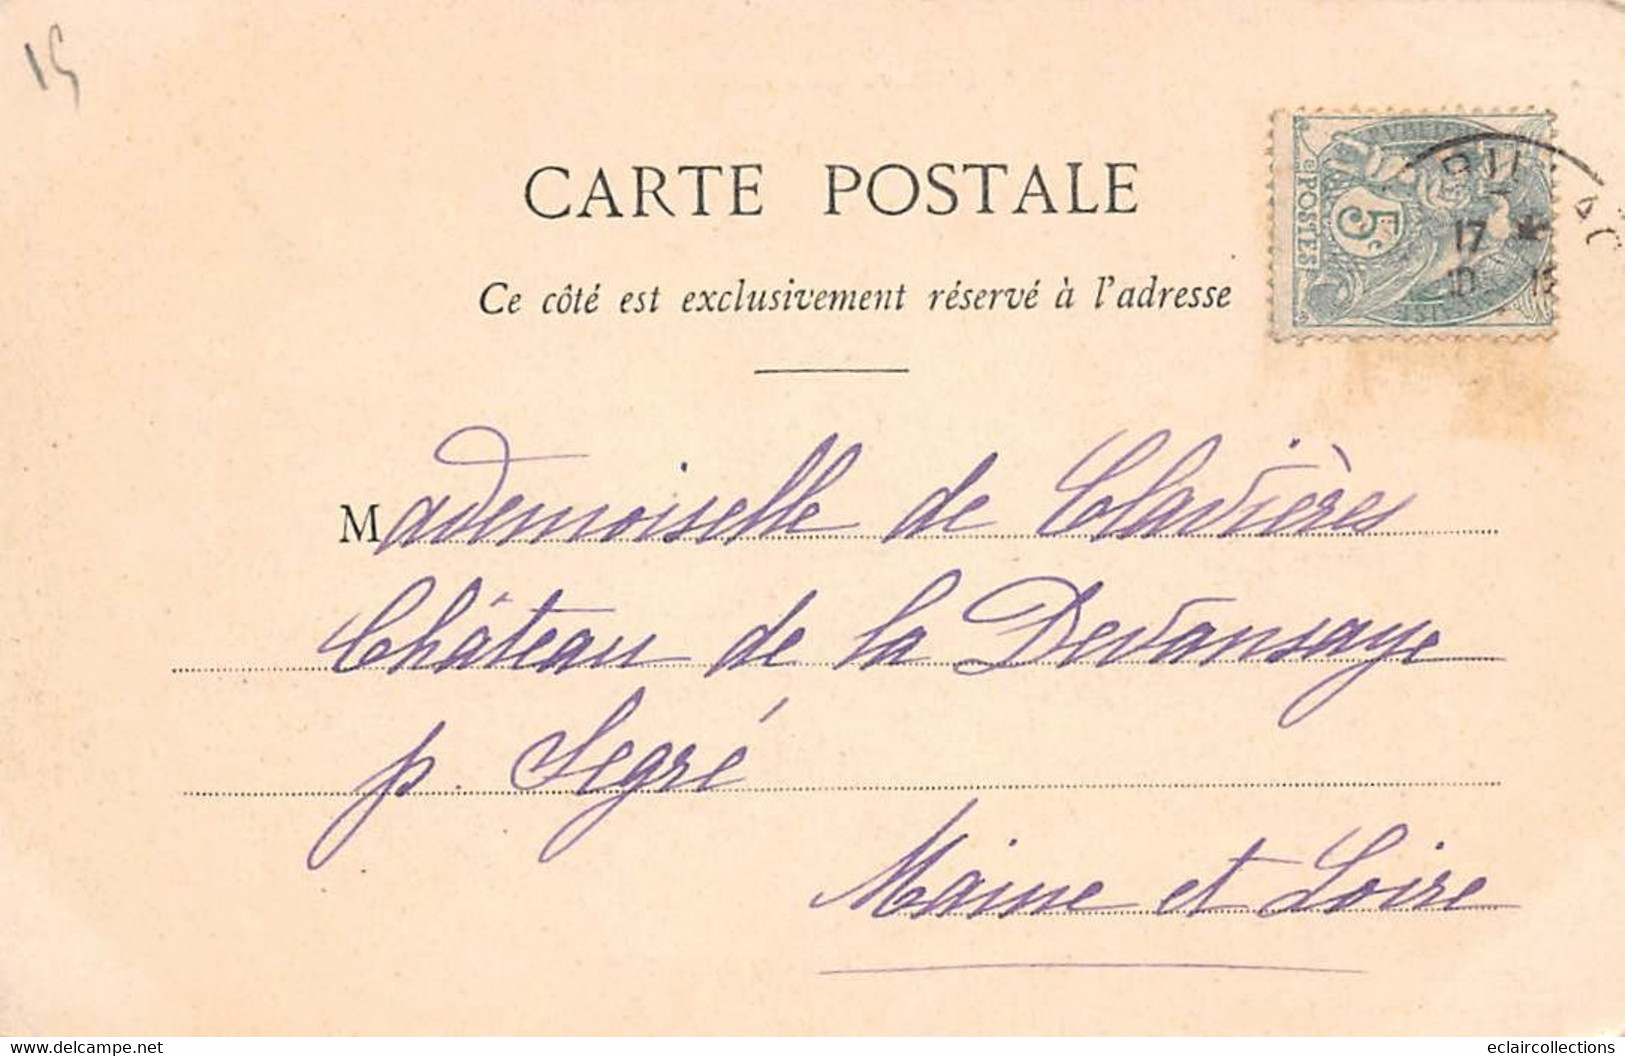 15
CARTE POSTALE
Ce côté est exclusivement réservé à l'adresse
POSTES
5c
17
10
Mademoiselle de Clavières
Château de la Devansaye
p. Segré
Maine et Loire
www.delcampe.net
eclaircollections